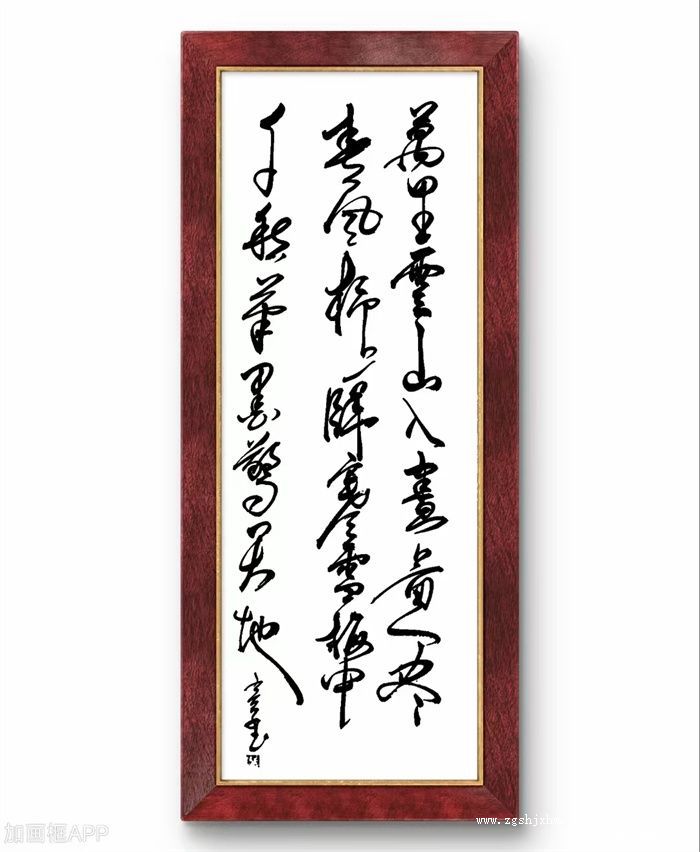 萬里雲山入畫
春風柳上歸寒雪梅中
千秋筆墨驚天地
www.zgshjxh
加画框APP